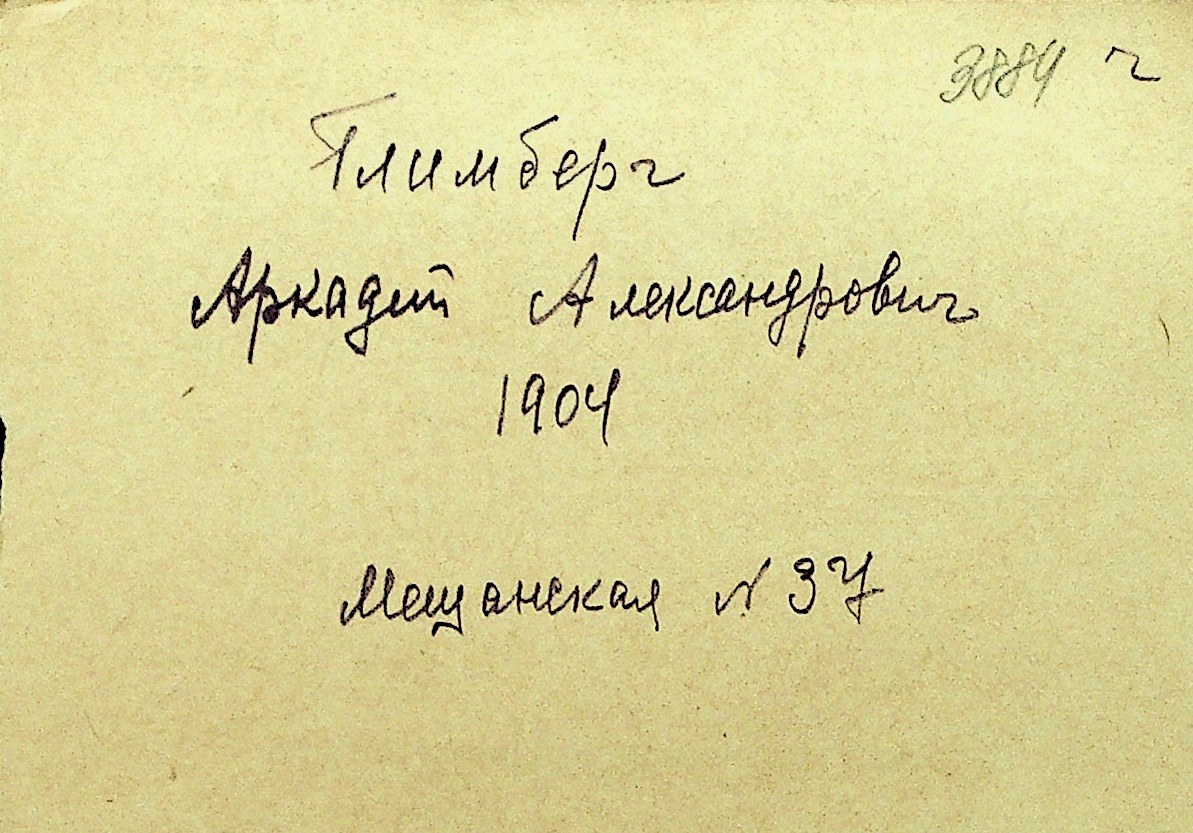 3884 г
Глимберг
Аркадий Александрович
1904
Мещанская N 37